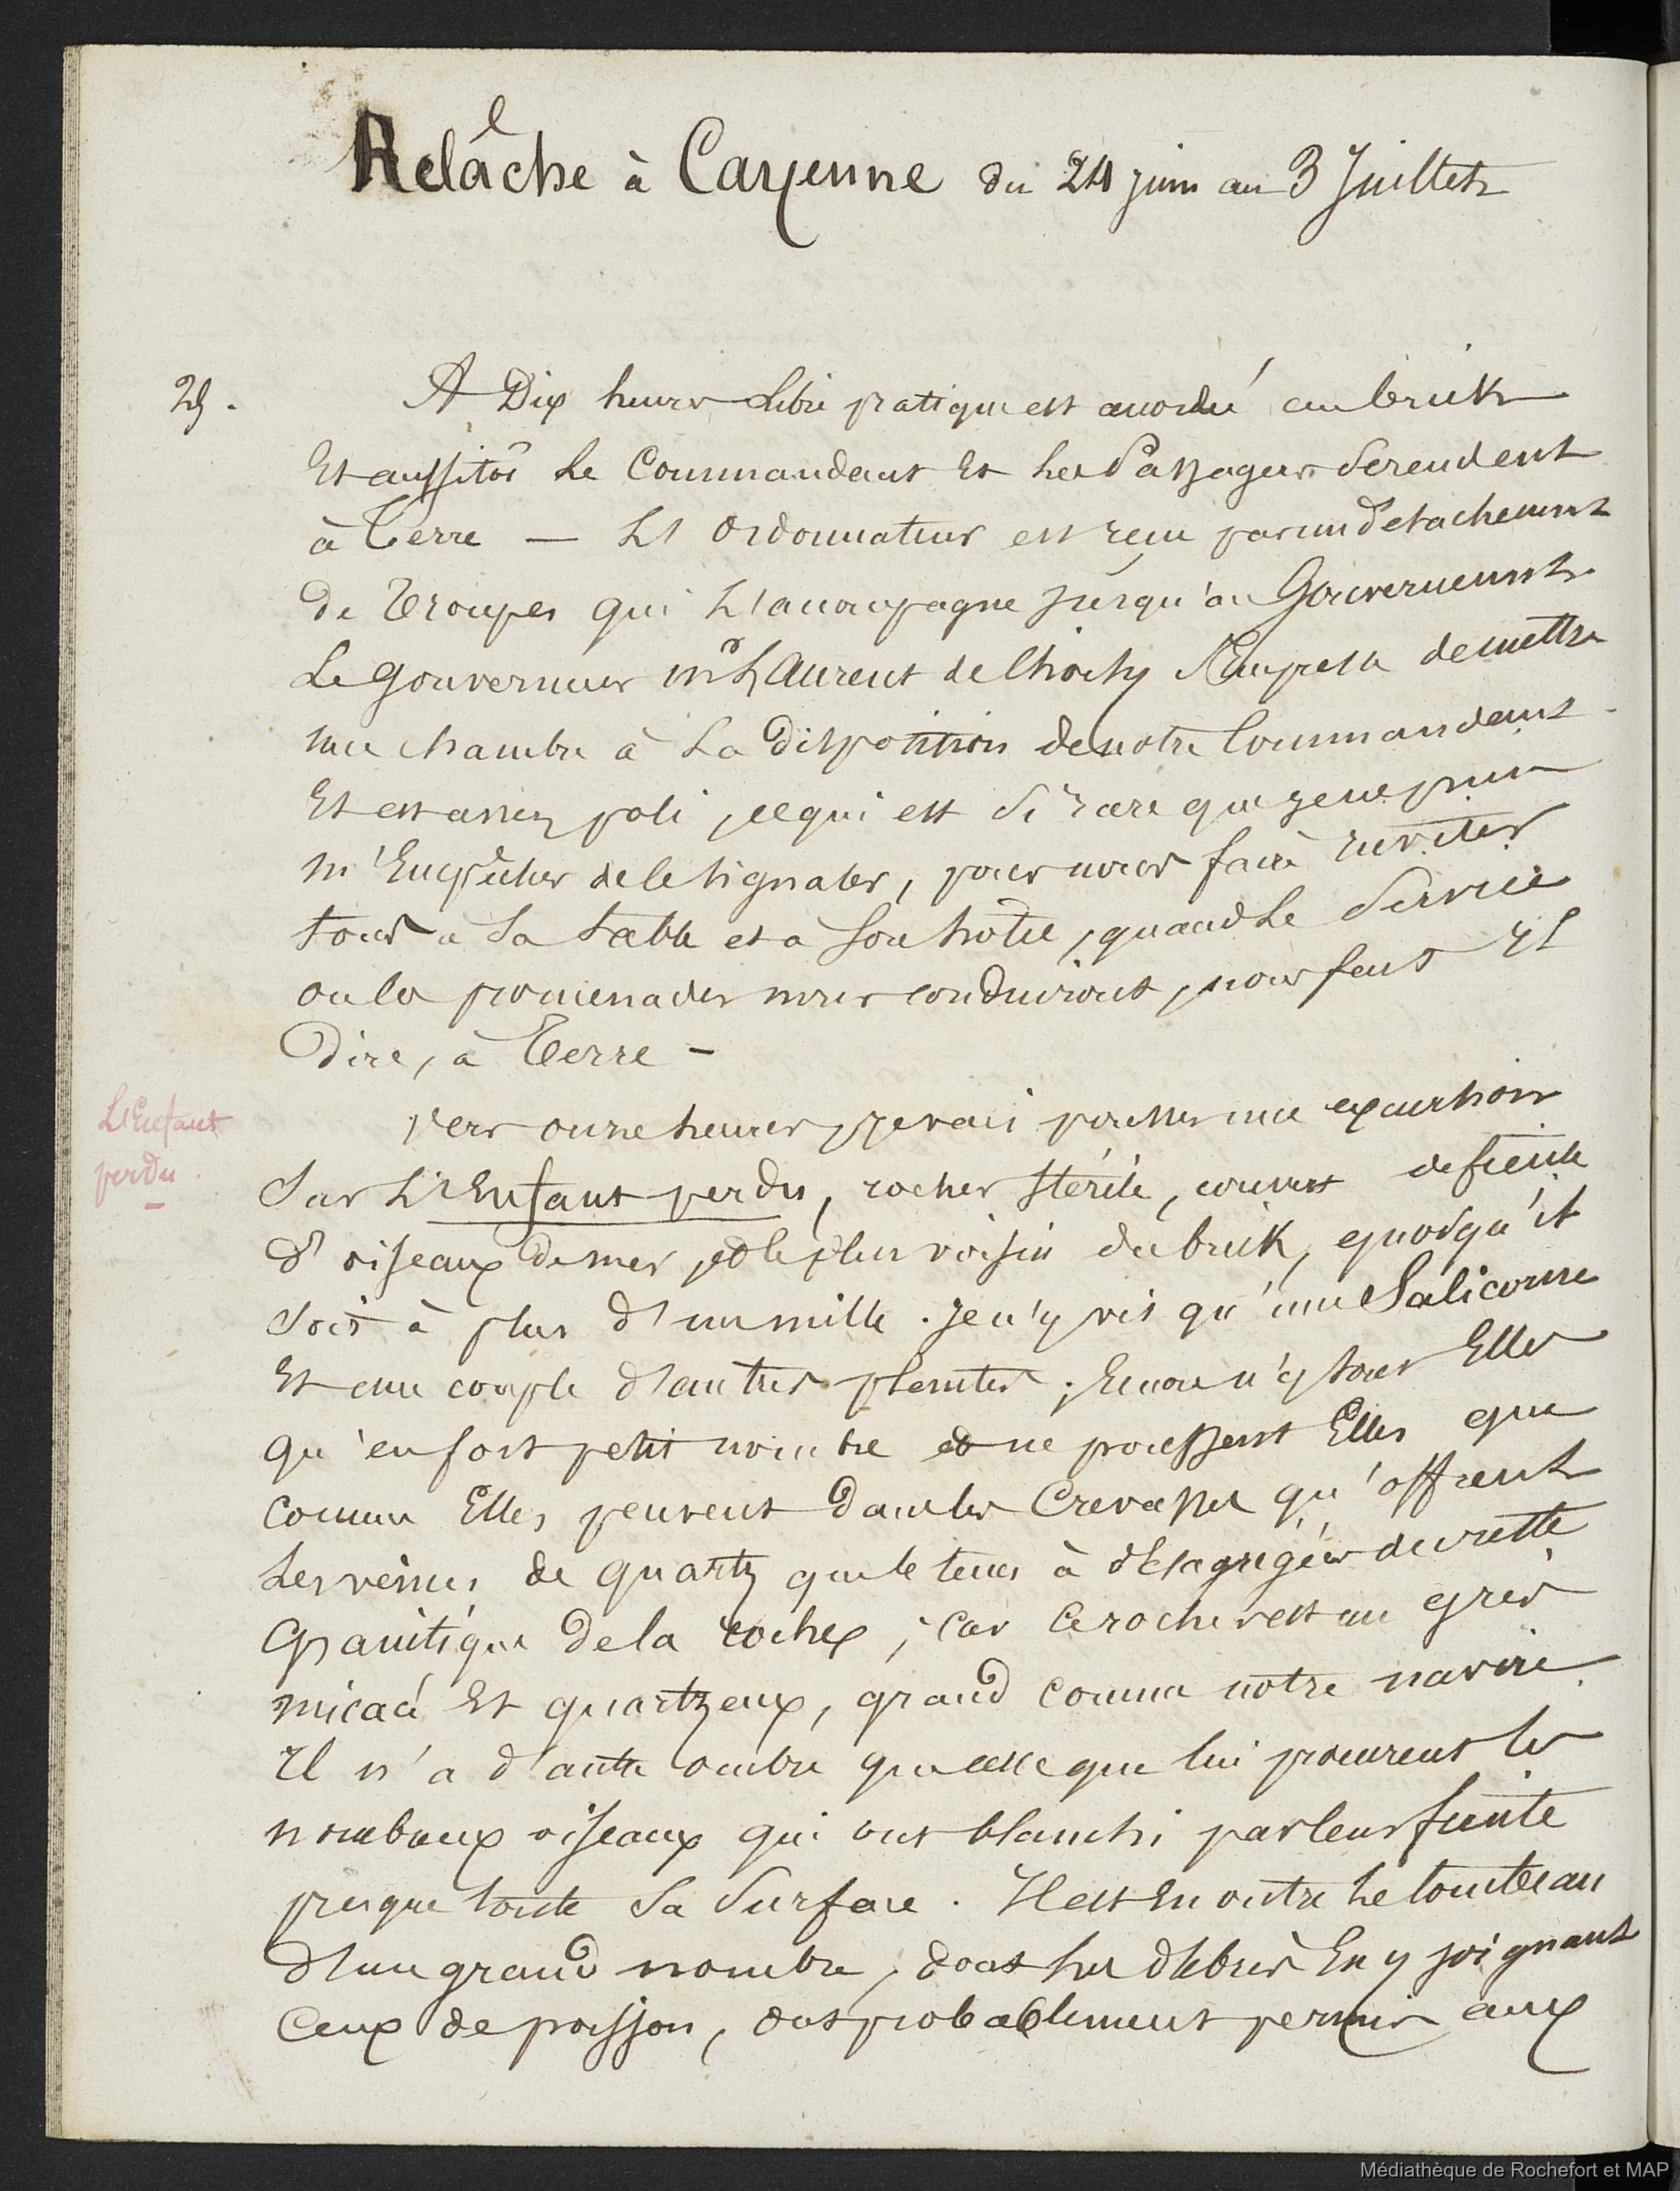 Relâche à Cayenne du 24 juin au 3 Juillet
25.
A Dix heures Libre pratique est accordé au brick
Et aussitôt Le Commandant Et Les Passagers se rendent
à Terre — L'Ordonnateur est reçu par un détachement
de Troupes qui L'accompagne jusqu'au Gouvernement
Le Gouverneur Mr Laurent de Choisy s'Empresse de mettre
une chambre à La disposition de notre Commandant
Et est assez poli, ce qui est si rare que je ne puis
m'Empêcher de le signaler, pour nous faire inviter
tous à Sa table et à Son hotel, quand Le Service
ou les promenades nous conduiront, nous fait il
Dire, à Terre –
L'Enfant
perdu.
Vers onze heures, je vais pousser une excursion
Sur L'Enfant perdu, rocher stérile, couvert de fiente
d'oiseaux de mer, et le plus voisin du brick, quoiqu'il
Soit à plus d'un mille. Je n'y vis qu'une Salicorne
Et une couple d'autres plantes; Encore n'y sont Elles
qu'en fort petit nombre et ne poussent Elles que
comme Elles peuvent dans les Crevasses qu'offrent
Les veines de quartz que le tems à désagrégées de cette
Granitique de la roche; Car Ce rocher est un grès
micacé Et quartzeux, grand comme notre navire.
Il n'a d'autre ombre que celle que lui procurent les
nombreux oiseaux qui ont blanchi par leur fiente
presque toute Sa Surface. Il est En outre Le tombeau
d'un grand nombre, dont les débris En y joignant
Ceux de poisson, ont probablement permis aux
Médiathèque de Rochefort et MAP